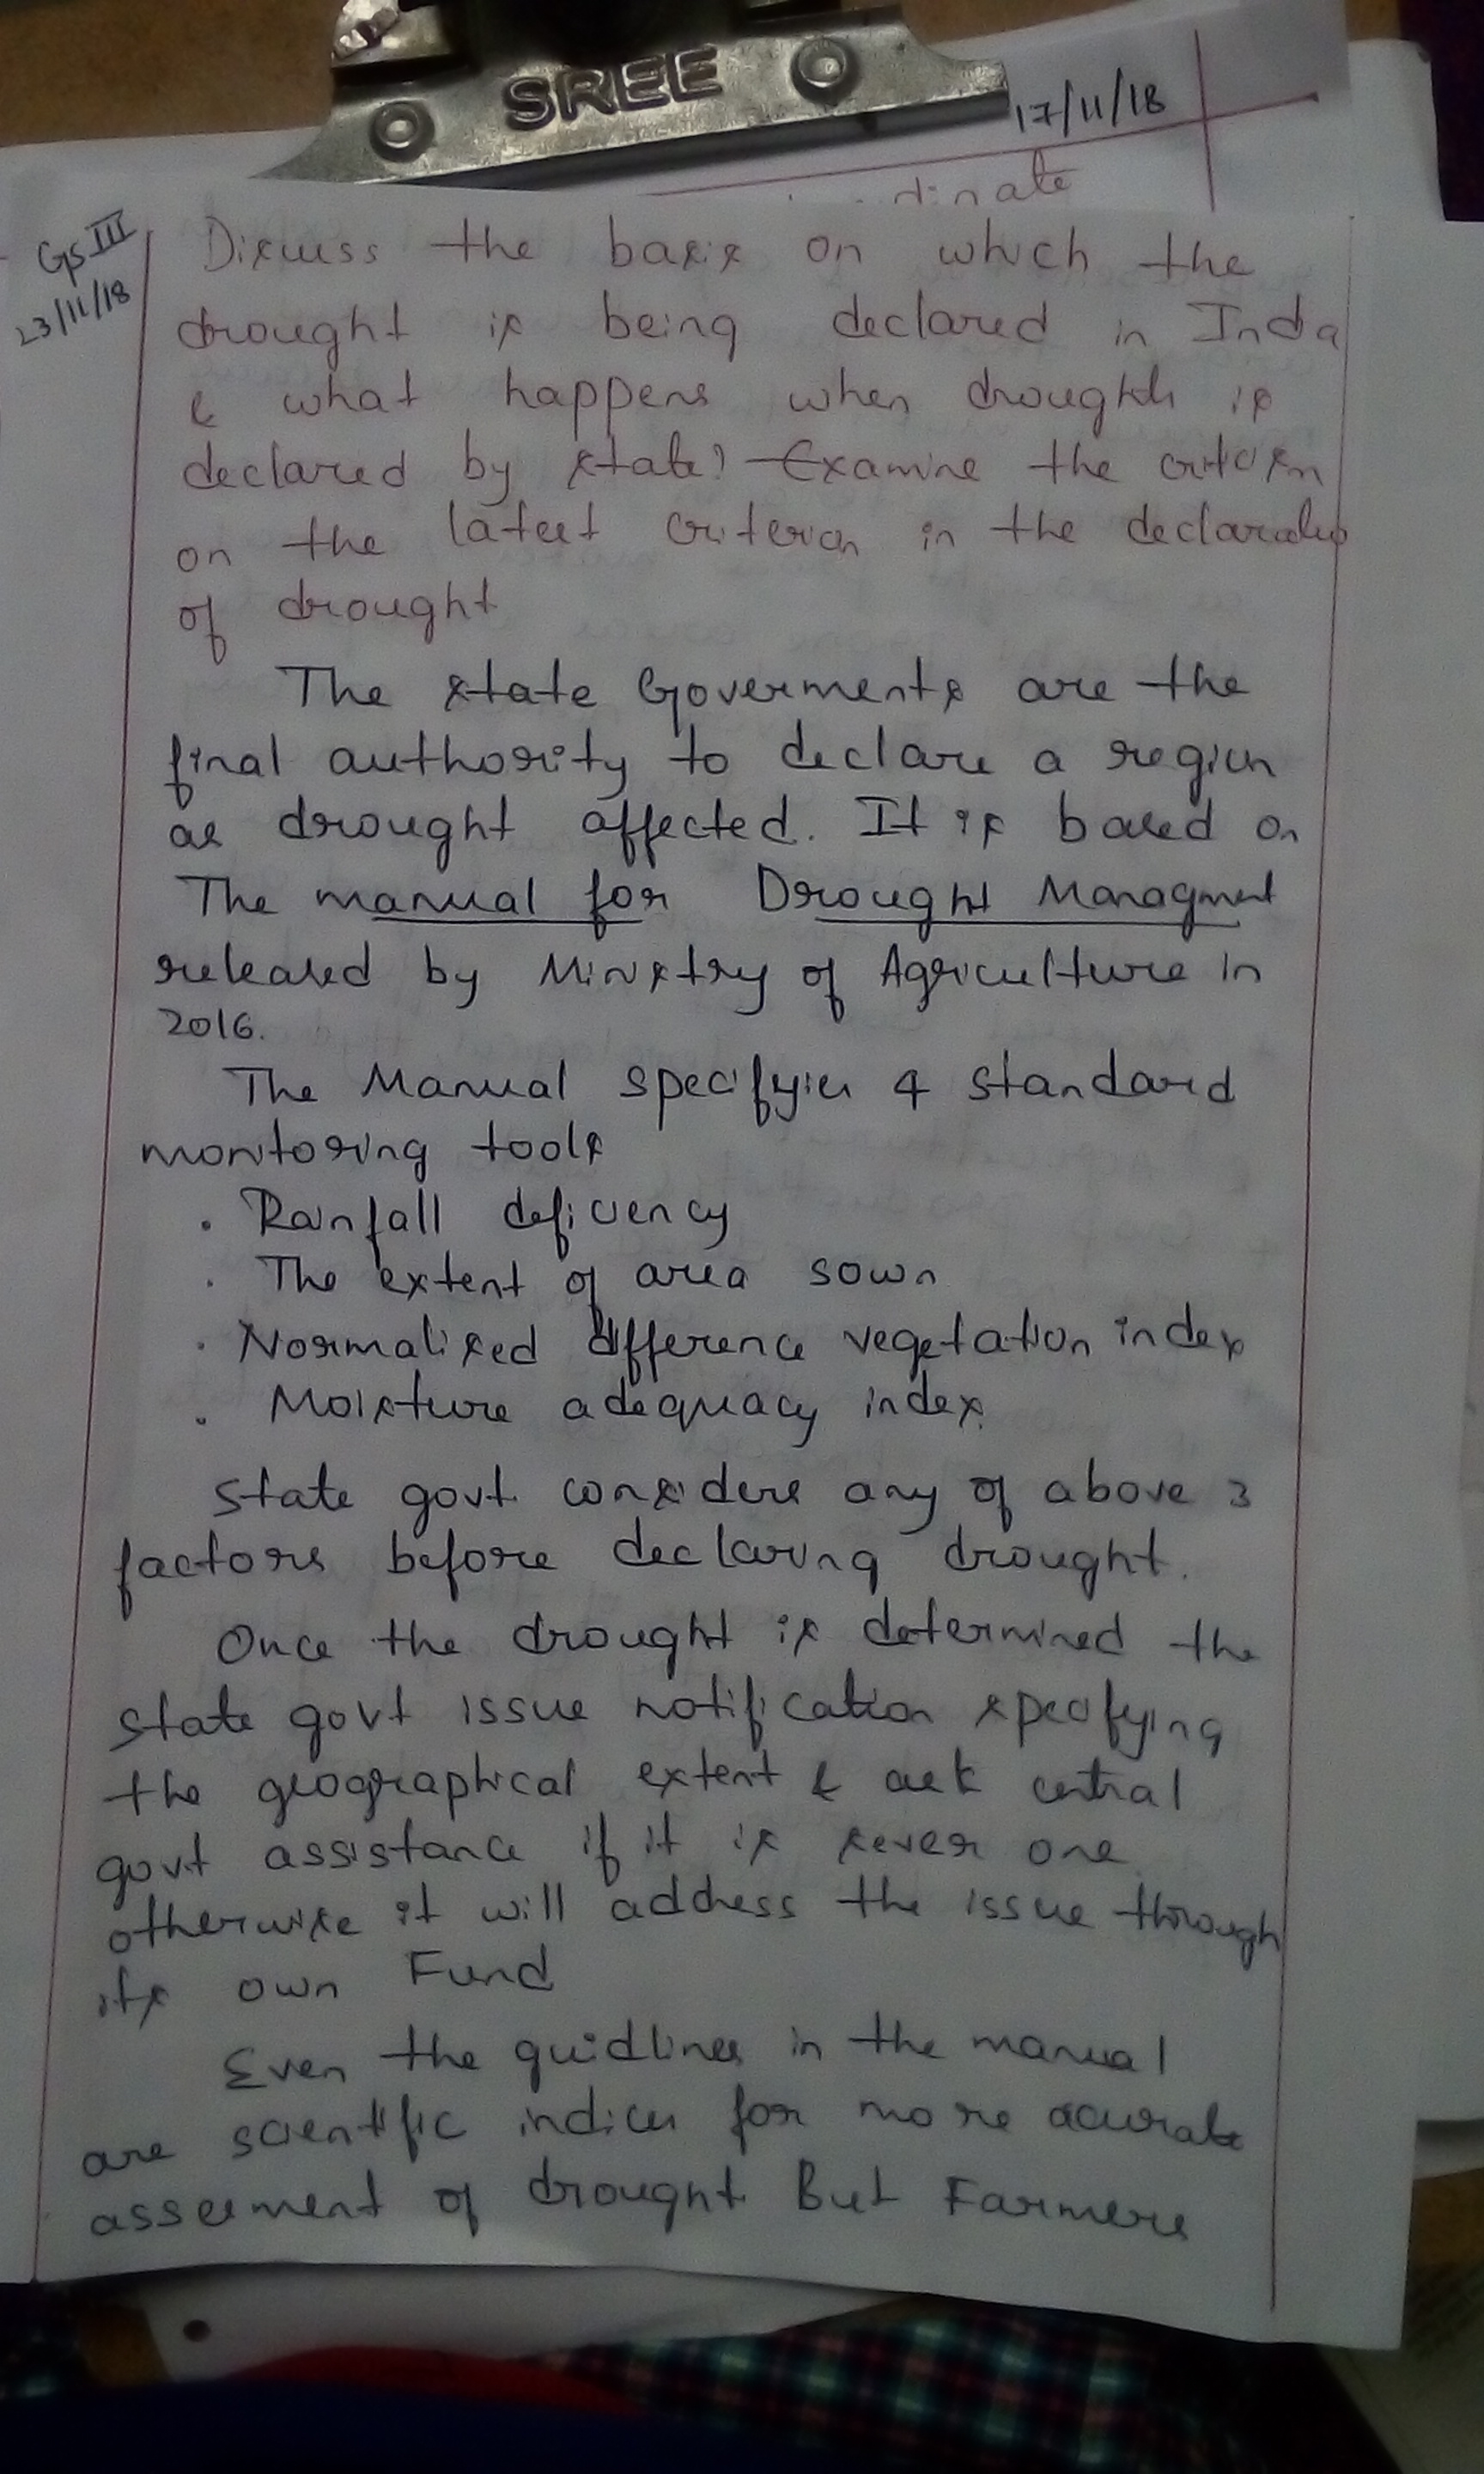 SREE
17/11/18
dinate
GS III
23/11/18
Discuss the basis on which the
drought is being declared in India
& what happens when drought is
declared by state? Examine the criticism
on the latest criterion in the declaration
of drought
The state Goverments are the
final authority to declare a region
as drought affected. It is based on
The manual for Drought Managment
released by Ministry of Agriculture in
2016.
The Manual specifyies 4 standard
monitoring tools
. Rainfall deficiency
. The extent of area sown
. Normalised difference vegetation index
. Moisture adequacy index.
State govt. considers any of above 3
factors before declaring drought.
Once the drought is determined the
state govt issue notification specifying
the geographical extent & ask central
govt assistance if it is sever one
otherwise it will address the issue through
its own Fund
Even the guidlines in the manual
are scientific indices for more accurate
assesment of drought But Farmers